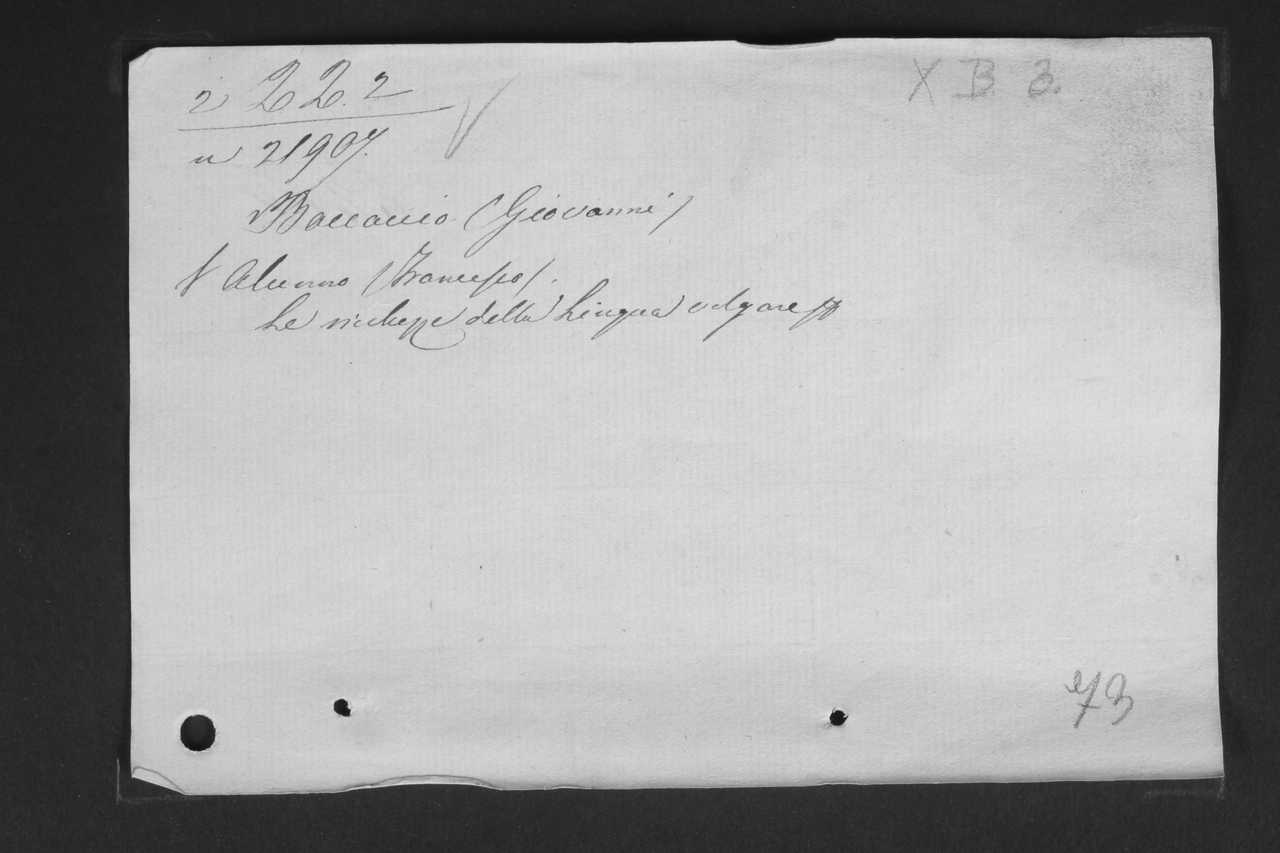 2 22.2
X B 3.
n 21907.
Boccaccio (Giovanni)
f Alunno (Francesco).
Le richezze della lingua volgare
73